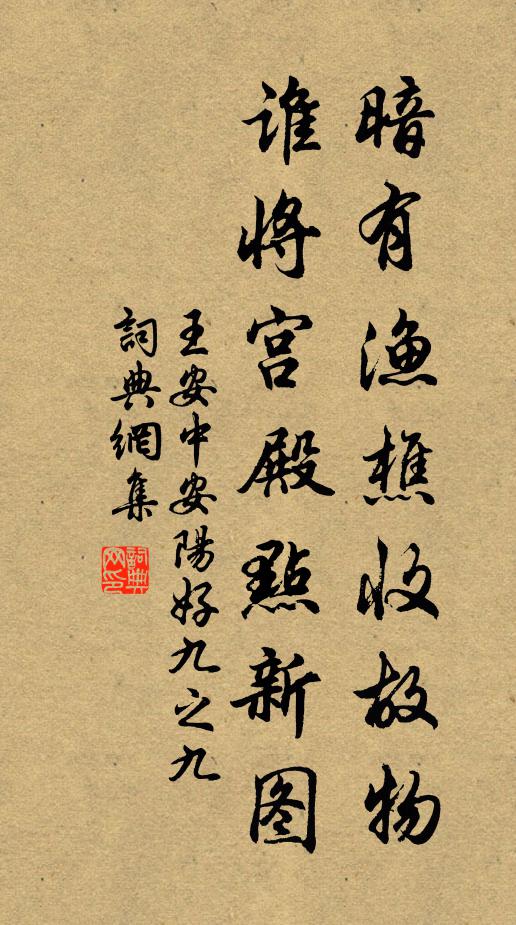 暗有漁樵收故物
谁將宫殿點新图
王安中安陽好九之九
詞典網集
詞典网印